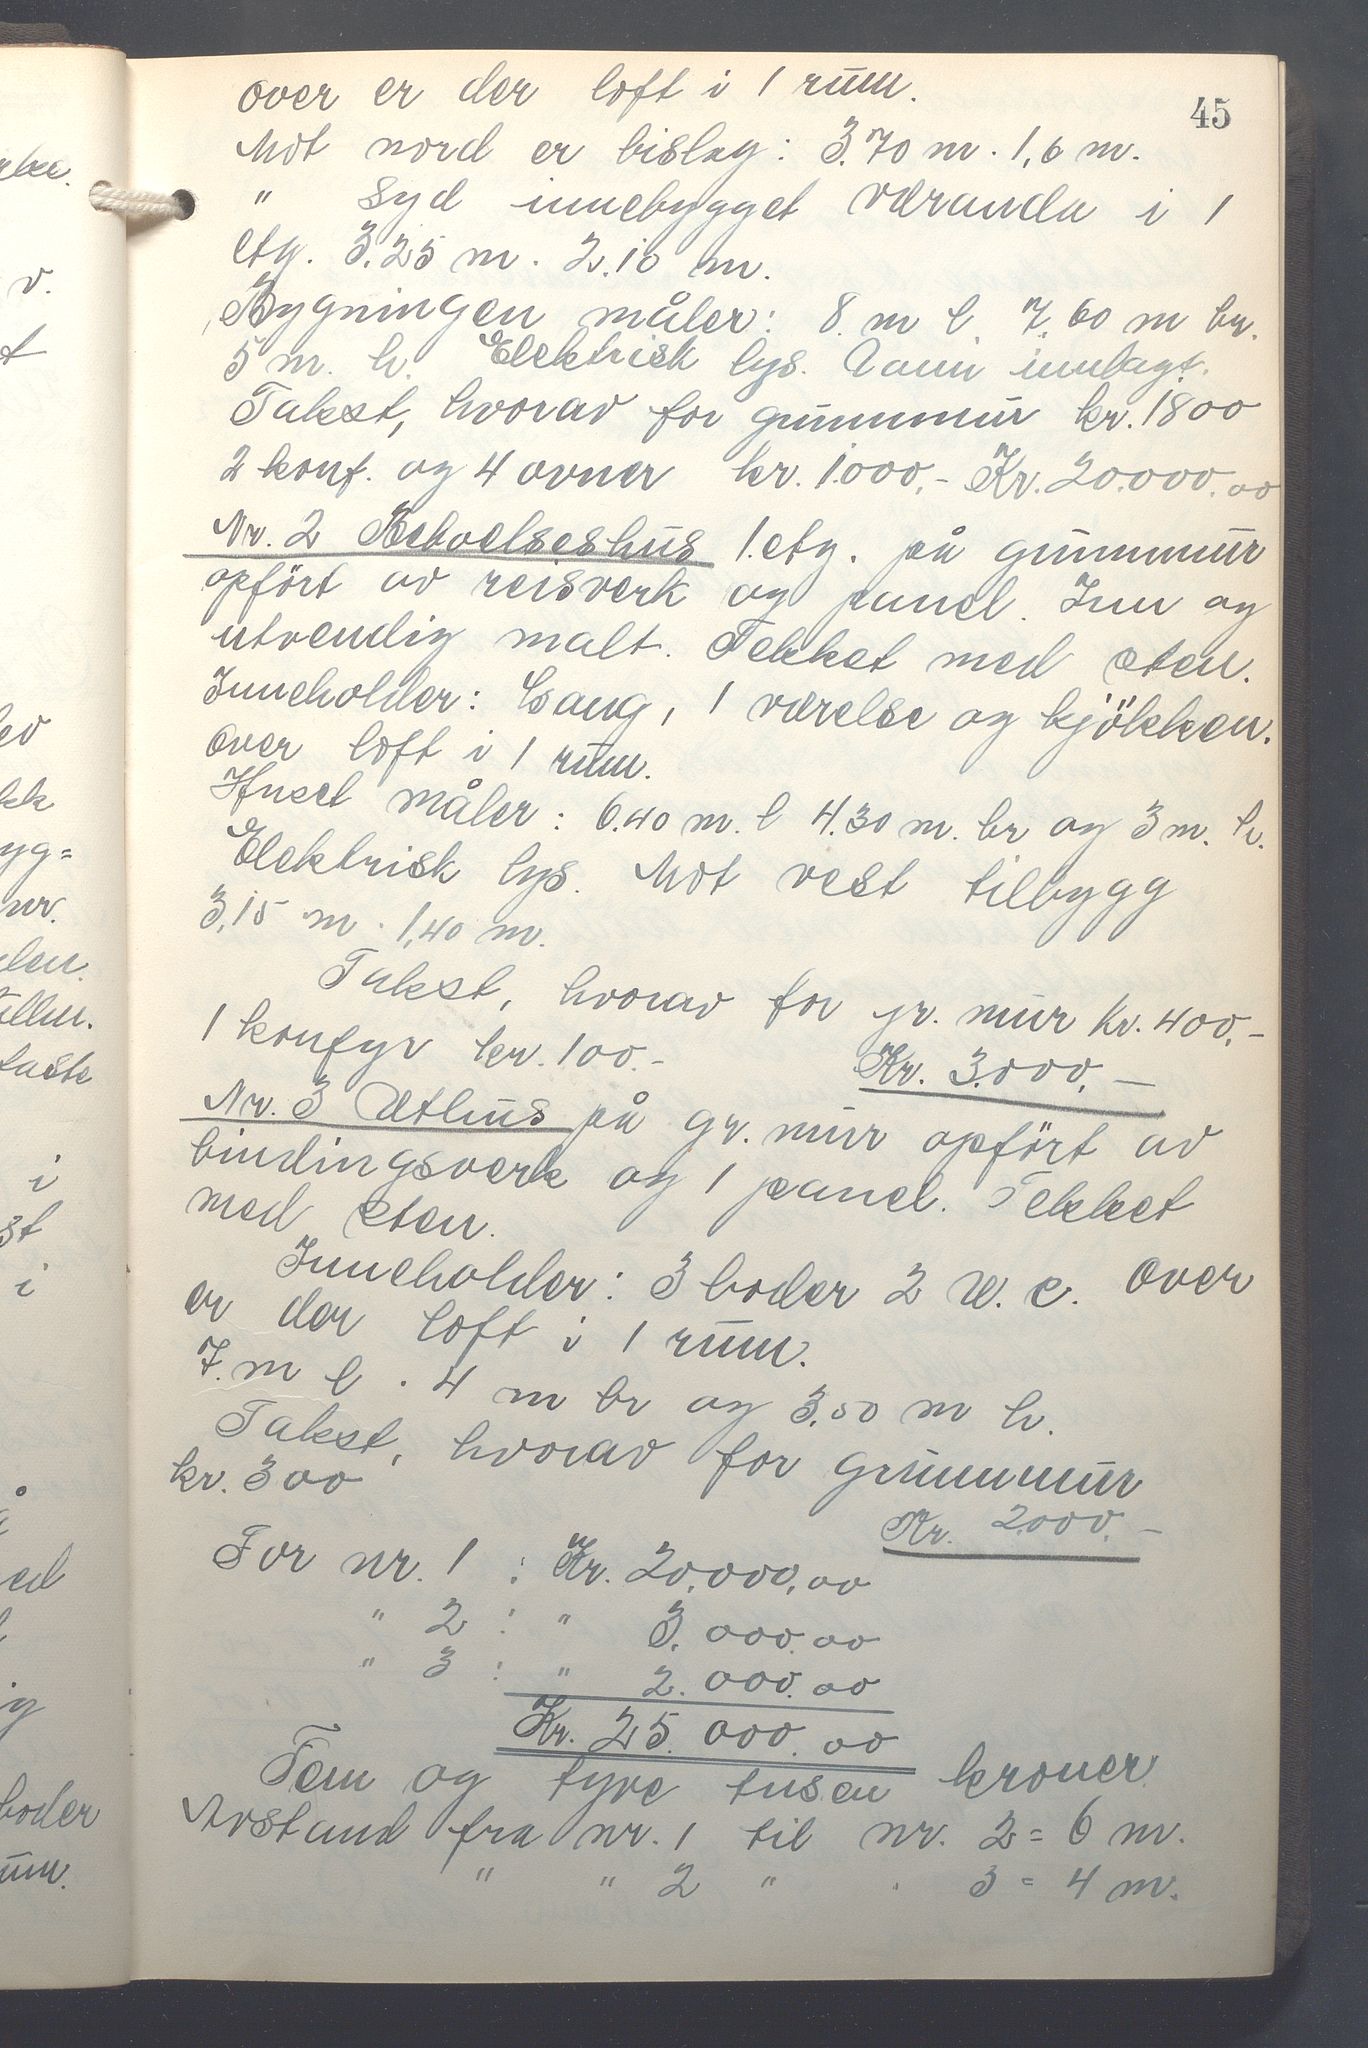 45
over er der loft i 1 rum.
Mot nord er bislag: 3.70 m. 1,6 m.
" syd innebygget væranda i 1
etg. 3.25 m. 2.10 m.
Bygningen måler: 8. m l 7.60 m br.
5 m. h. Elektrisk lys. Vann innlagt.
Takst, hvorav for grunnmur kr. 1800
2 konf. og 4 ovner kr. 1.000.- Kr. 20.000.00
Nr. 2 Beboelseshus 1. etg. på grunnmur
opført av reisverk og panel. Inn og
utvendig malt. Tekket med sten.
Inneholder: Gang, 1 værelse og kjökken.
over loft i 1 rum.
Huset måler: 6.40 m. l 4.30 m. br og 3 m. h.
Elektrisk lys. Mot vest tilbygg
3,15 m. 1,40 m.
Takst, hvorav for gr. mur kr. 400,-
1 komfyr kr. 100.-
Kr. 3.000,-
Nr. 3 Uthus på gr. mur opfört av
bindingsverk og 1 panel. Tekket
med sten.
Inneholder: 3 boder 2 W. c. over
er der loft i 1 rum.
7. m l. 4 m br og 3.50 m h.
Takst, hvorav for grunnmur
kr. 300
Kr. 2000.-
For nr. 1 : Kr. 20.000,00
" 2 : " 3.000.00
" 3 : " 2.000.00
Kr. 25.000.00
Fem og tyve tusen kroner.
Avstand fra nr. 1 til nr. 2 = 6 m.
" " 2 " . 3 = 4 m.